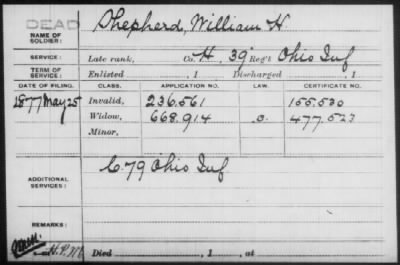 DEAD
NAME OF SOLDIER: Shepherd, William H.
SERVICE: Late rank, Co. H, 39 Reg't Ohio Inf
TERM OF SERVICE: Enlisted , 1 Discharged , 1
DATE OF FILING. CLASS. APPLICATION NO. LAW. CERTIFICATE NO.
1877 May 25 Invalid, 236.561 155.530
Widow, 668.914 477.523
Minor,
ADDITIONAL SERVICES: C. 79 Ohio Inf
REMARKS:
Died , 1 , at